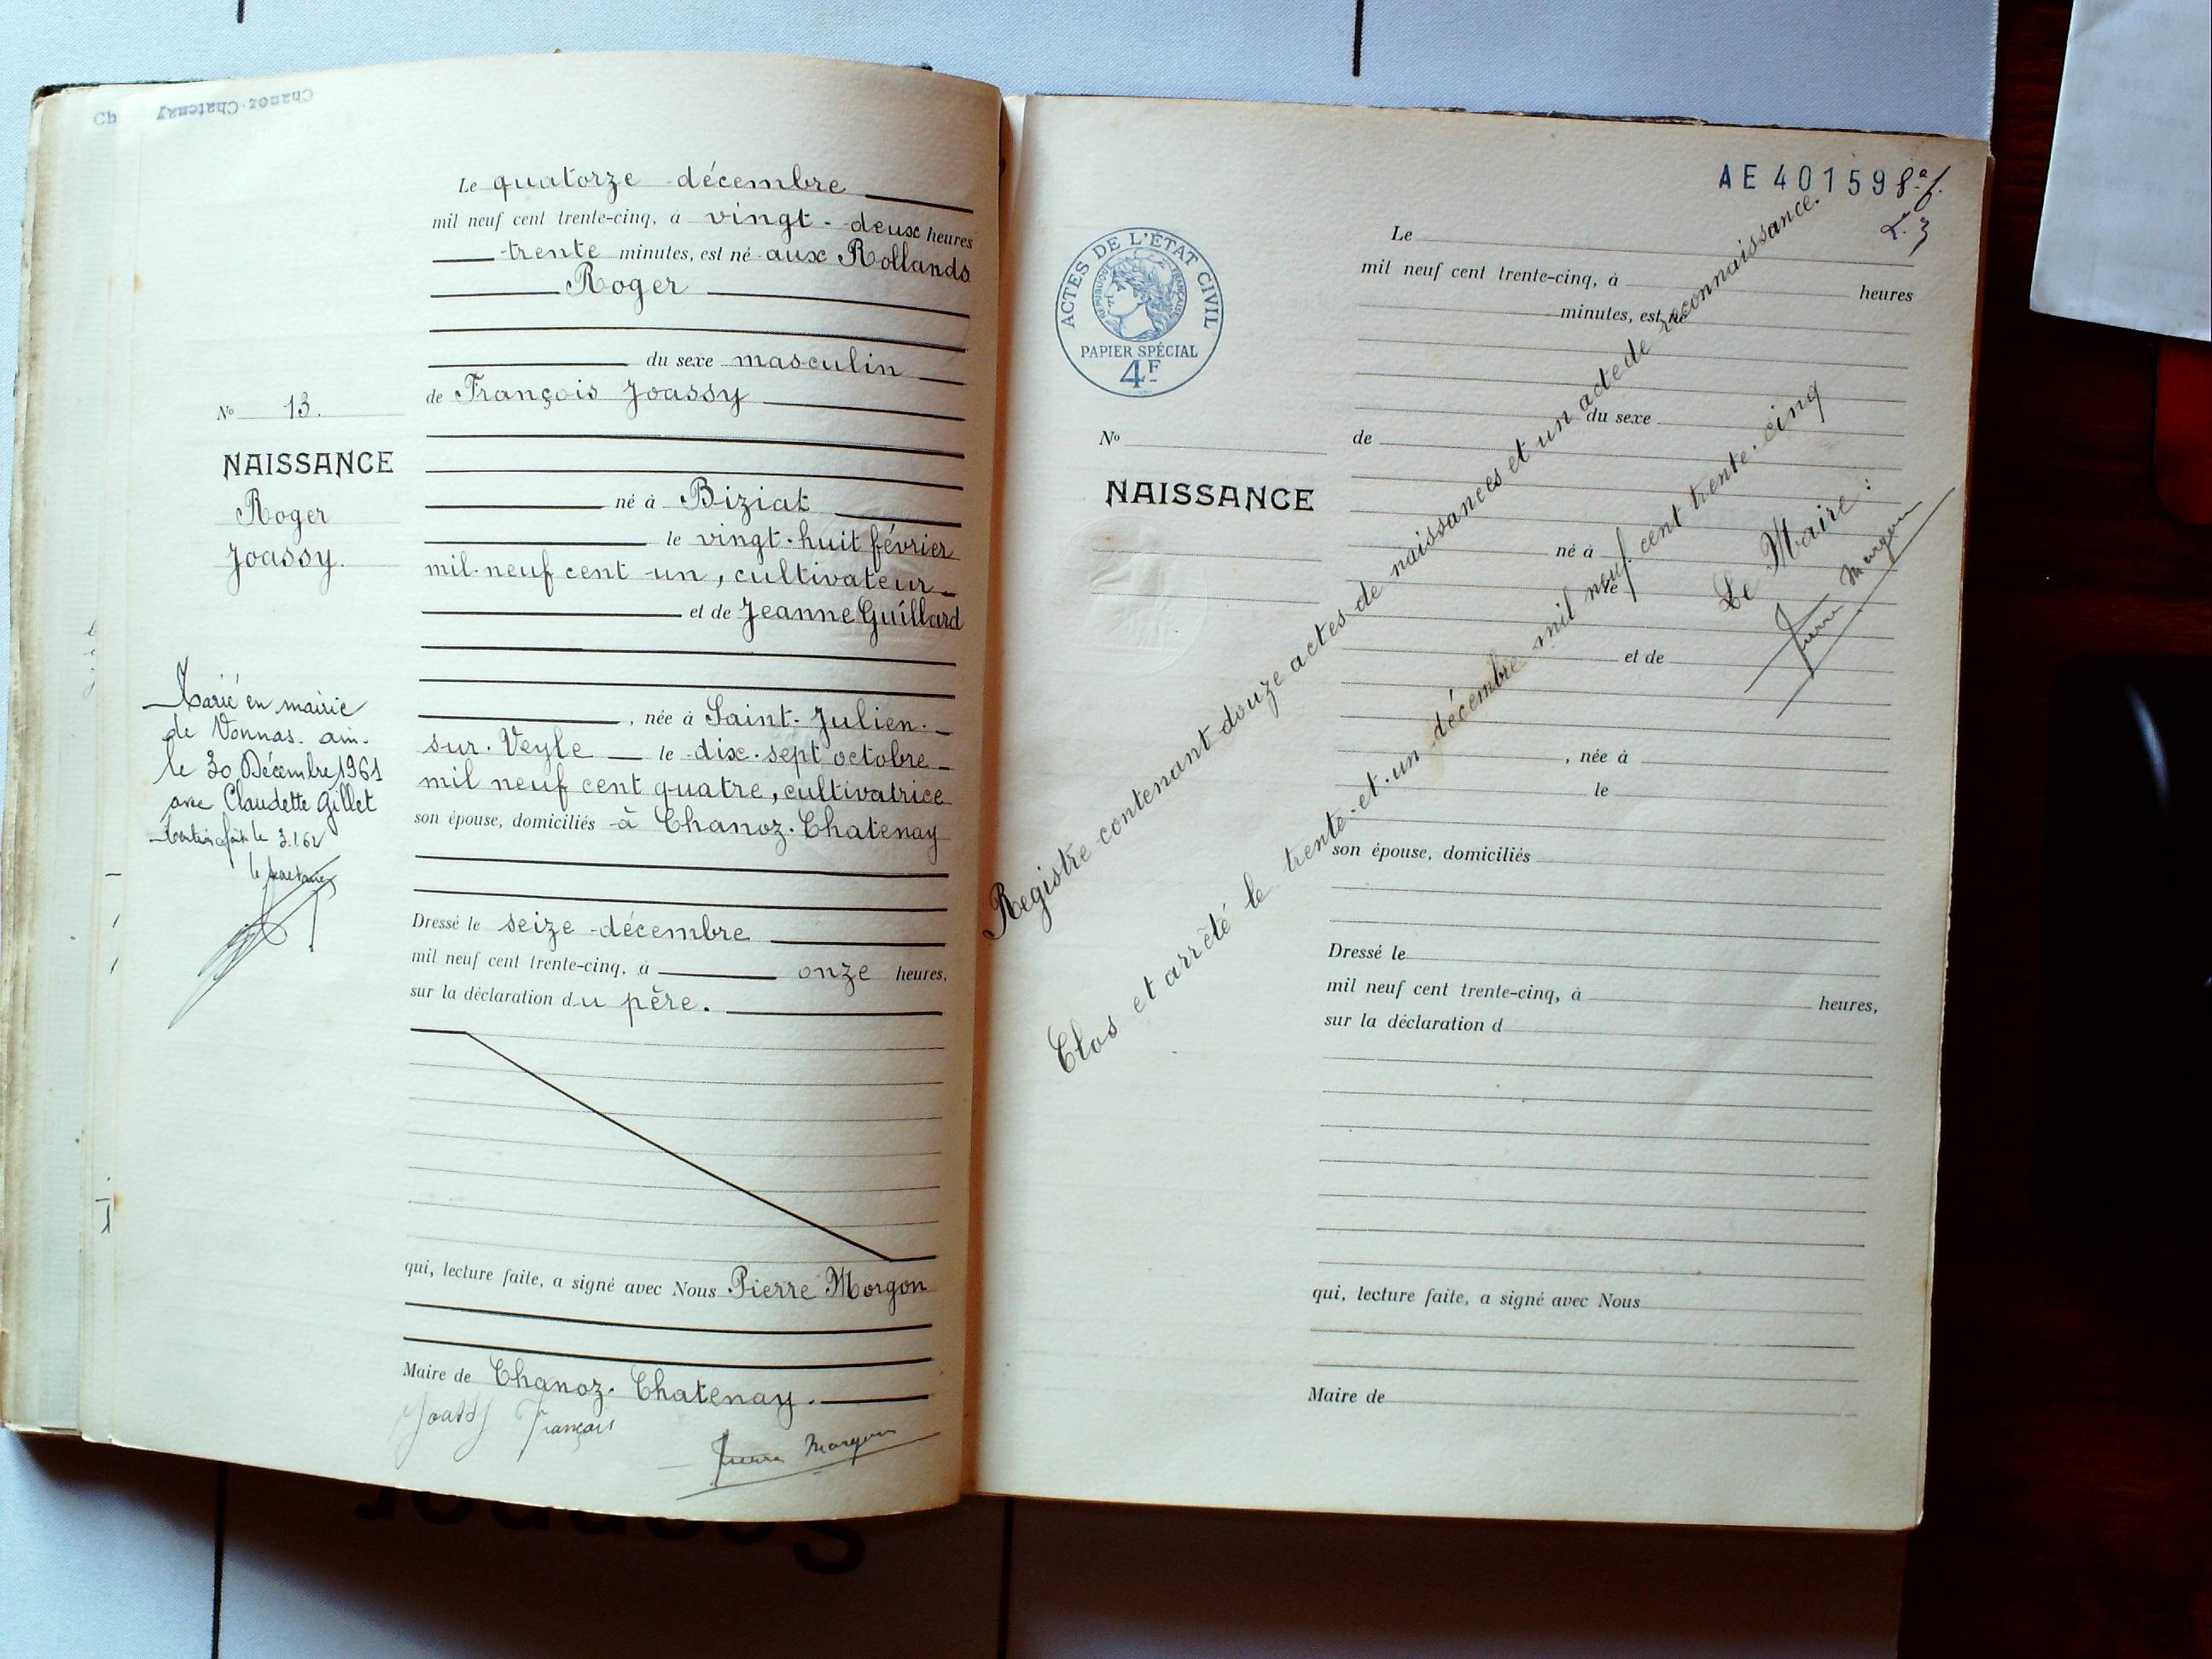 Ch Chanoz-Chatenay
Le quatorze décembre
mil neuf cent trente-cinq, à vingt-deux heures
trente minutes, est né aux Rollands
Roger
du sexe masculin
de François Joassy
né à Biziat
le vingt-huit février
mil neuf cent un, cultivateur
et de Jeanne Guillard
, née à Saint-Julien-
sur-Veyle le dix-sept octobre
mil neuf cent quatre, cultivatrice
son épouse, domiciliés à Chanoz-Chatenay
Dressé le seize décembre
mil neuf cent trente-cinq, à onze heures,
sur la déclaration du père.
qui, lecture faite, a signé avec Nous Pierre Morgon
Maire de Chanoz-Chatenay.
Joassy François
Pierre Morgon
No 13.
NAISSANCE
Roger
Joassy.
Marié en mairie
de Vonnas ain
le 30 Décembre 1961
avec Claudette Gillet
le 3.1.62
le
AE 40159
ACTES DE L'ÉTAT CIVIL
RÉPUBLIQUE FRANÇAISE
PAPIER SPÉCIAL
4F
No
NAISSANCE
Le
mil neuf cent trente-cinq, à heures
minutes, est né
du sexe
de
né à
le
et de
, née à
le
son épouse, domiciliés
Dressé le
mil neuf cent trente-cinq, à heures,
sur la déclaration d
qui, lecture faite, a signé avec Nous
Maire de
Registre contenant douze actes de naissances et un acte de reconnaissance.
Clos et arrêté le trente-et-un décembre mil neuf cent trente-cinq
Le Maire :
Pierre Morgon